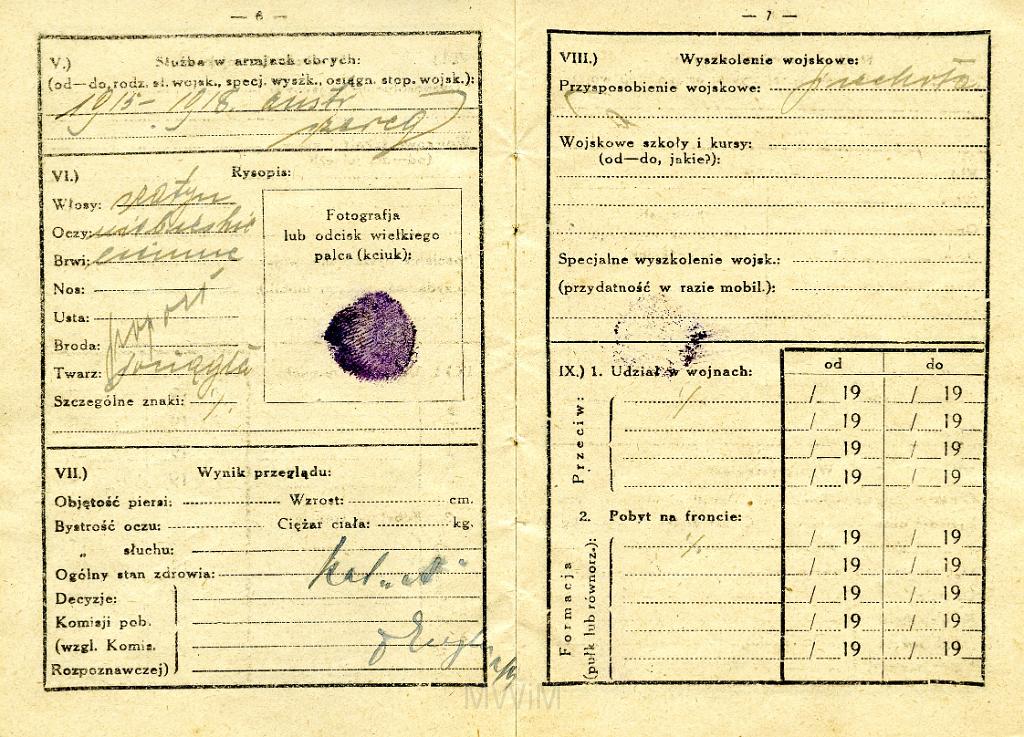 — 6 —
V.) Służba w armjach obcych:
(od—do, rodz. sł. wojsk., specj. wyszk., osiągn. stop. wojsk.):
1915 - 1918. austr.
szereg
VI.) Rysopis:
Włosy: szatyn
Oczy: niebieskie
Brwi: ciemne
Nos:
Usta:
Broda:
Twarz: pociągła
Szczególne znaki: ./.
Fotografja
lub odcisk wielkiego
palca (kciuk):
VII.) Wynik przeglądu:
Objętość piersi: Wzrost: cm.
Bystrość oczu: Ciężar ciała: kg.
„ słuchu:
Ogólny stan zdrowia: kat. „A"
Decyzje:
Komisji pob.
(wzgl. Komis.
Rozpoznawczej)
— 7 —
VIII.) Wyszkolenie wojskowe:
Przysposobienie wojskowe: piechota
Wojskowe szkoły i kursy:
(od—do, jakie?):
Specjalne wyszkolenie wojsk.:
(przydatność w razie mobil.):
IX.) 1. Udział w wojnach: od do
Przeciw: ./.
/ 19 / 19
/ 19 / 19
/ 19 / 19
/ 19 / 19
2. Pobyt na froncie:
Formacja
(pułk lub równorz.): ./.
/ 19 / 19
/ 19 / 19
/ 19 / 19
/ 19 / 19
/ 19 / 19
MWiM